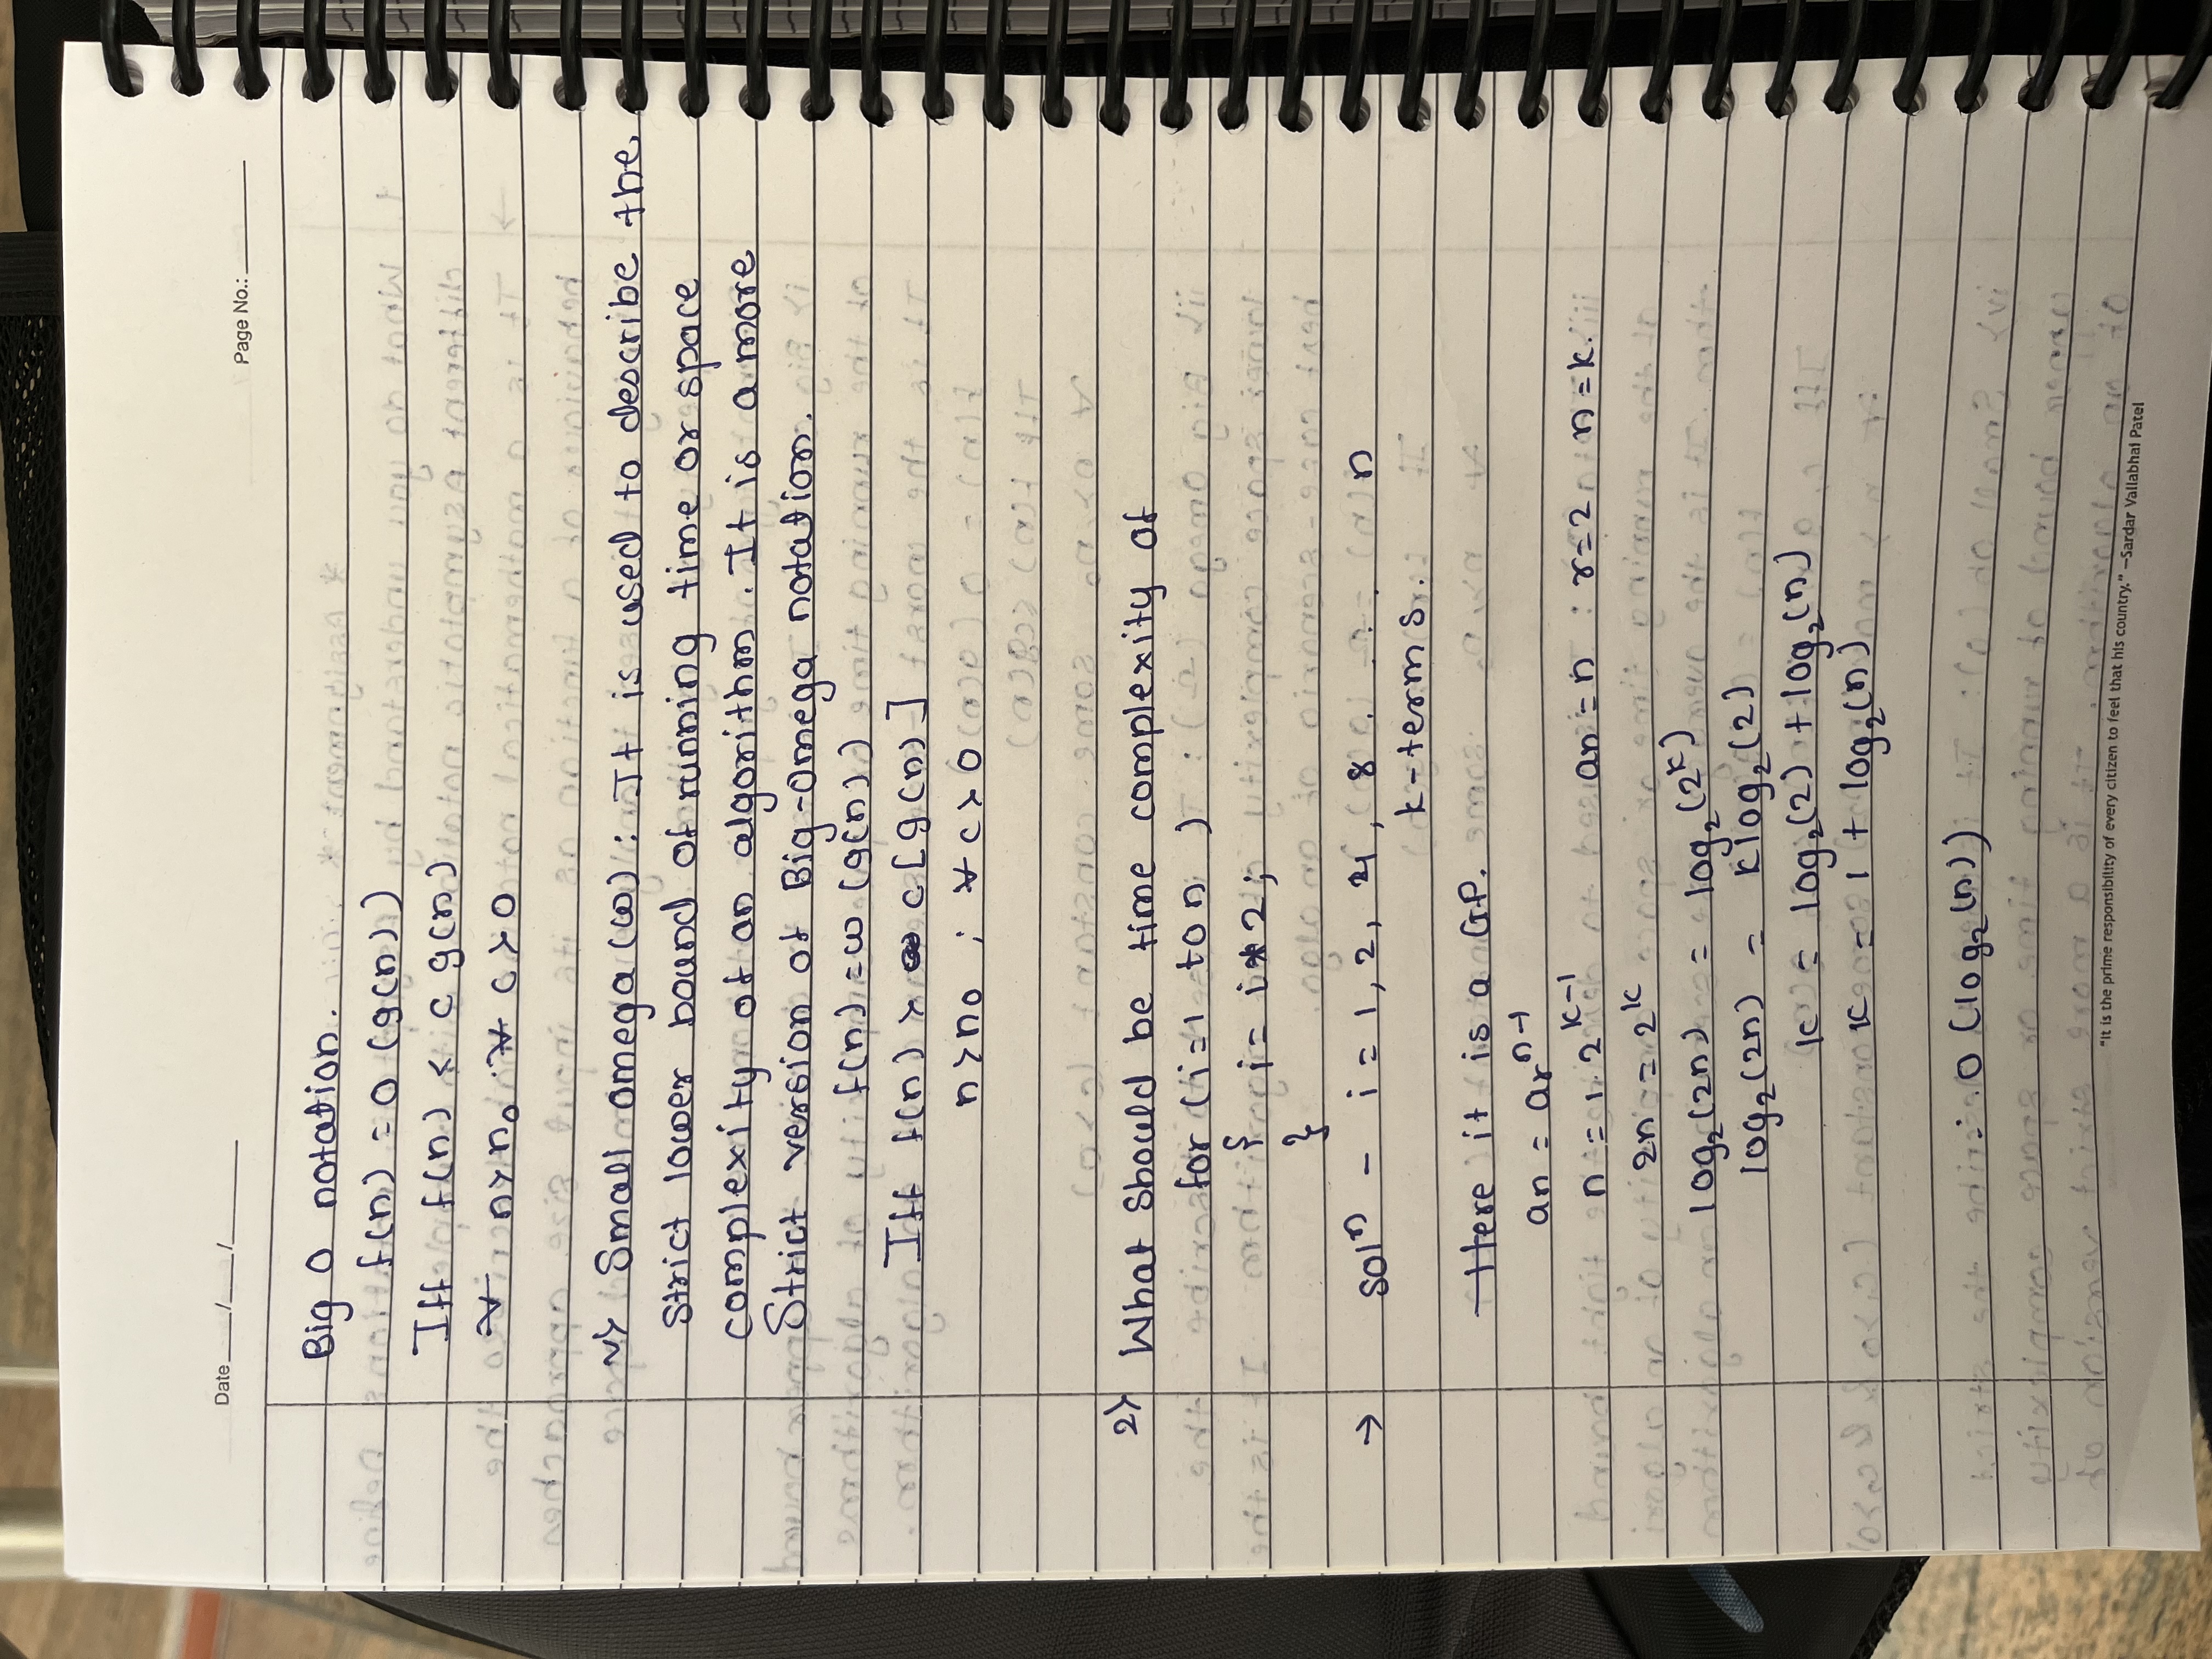 Date ___/___/______
Page No.: ________
Big O notation.
f(n) = o (g(n))
Iff f(n) < c g(n)
∀ n>n₀ ; ∀ c>0
v> Small omega (ω) : It is used to describe the
strict lower bound of running time or space
complexity of an algorithm. It is a more
Strict version of Big-Omega notation.
f(n) = ω (g(n))
Iff f(n) > c[g(n)]
n>n₀ ; ∀ c>0
2> What should be time complexity of
for (i=1 to n )
{ i = i*2;
}
→ solⁿ - i = 1, 2, 4, 8 . . . . n
k-terms.
Here it is a GP.
an = arⁿ⁻¹
n = 1.2ᵏ⁻¹ an = n : r=2 n=k.
2n = 2ᵏ
log₂(2n) = log₂(2ᵏ)
log₂(2n) = klog₂(2)
k = log₂(2) + log₂(n)
k = 1 + log₂(n)
∴ O (log₂(n))
"It is the prime responsibility of every citizen to feel that his country." —Sardar Vallabhai Patel